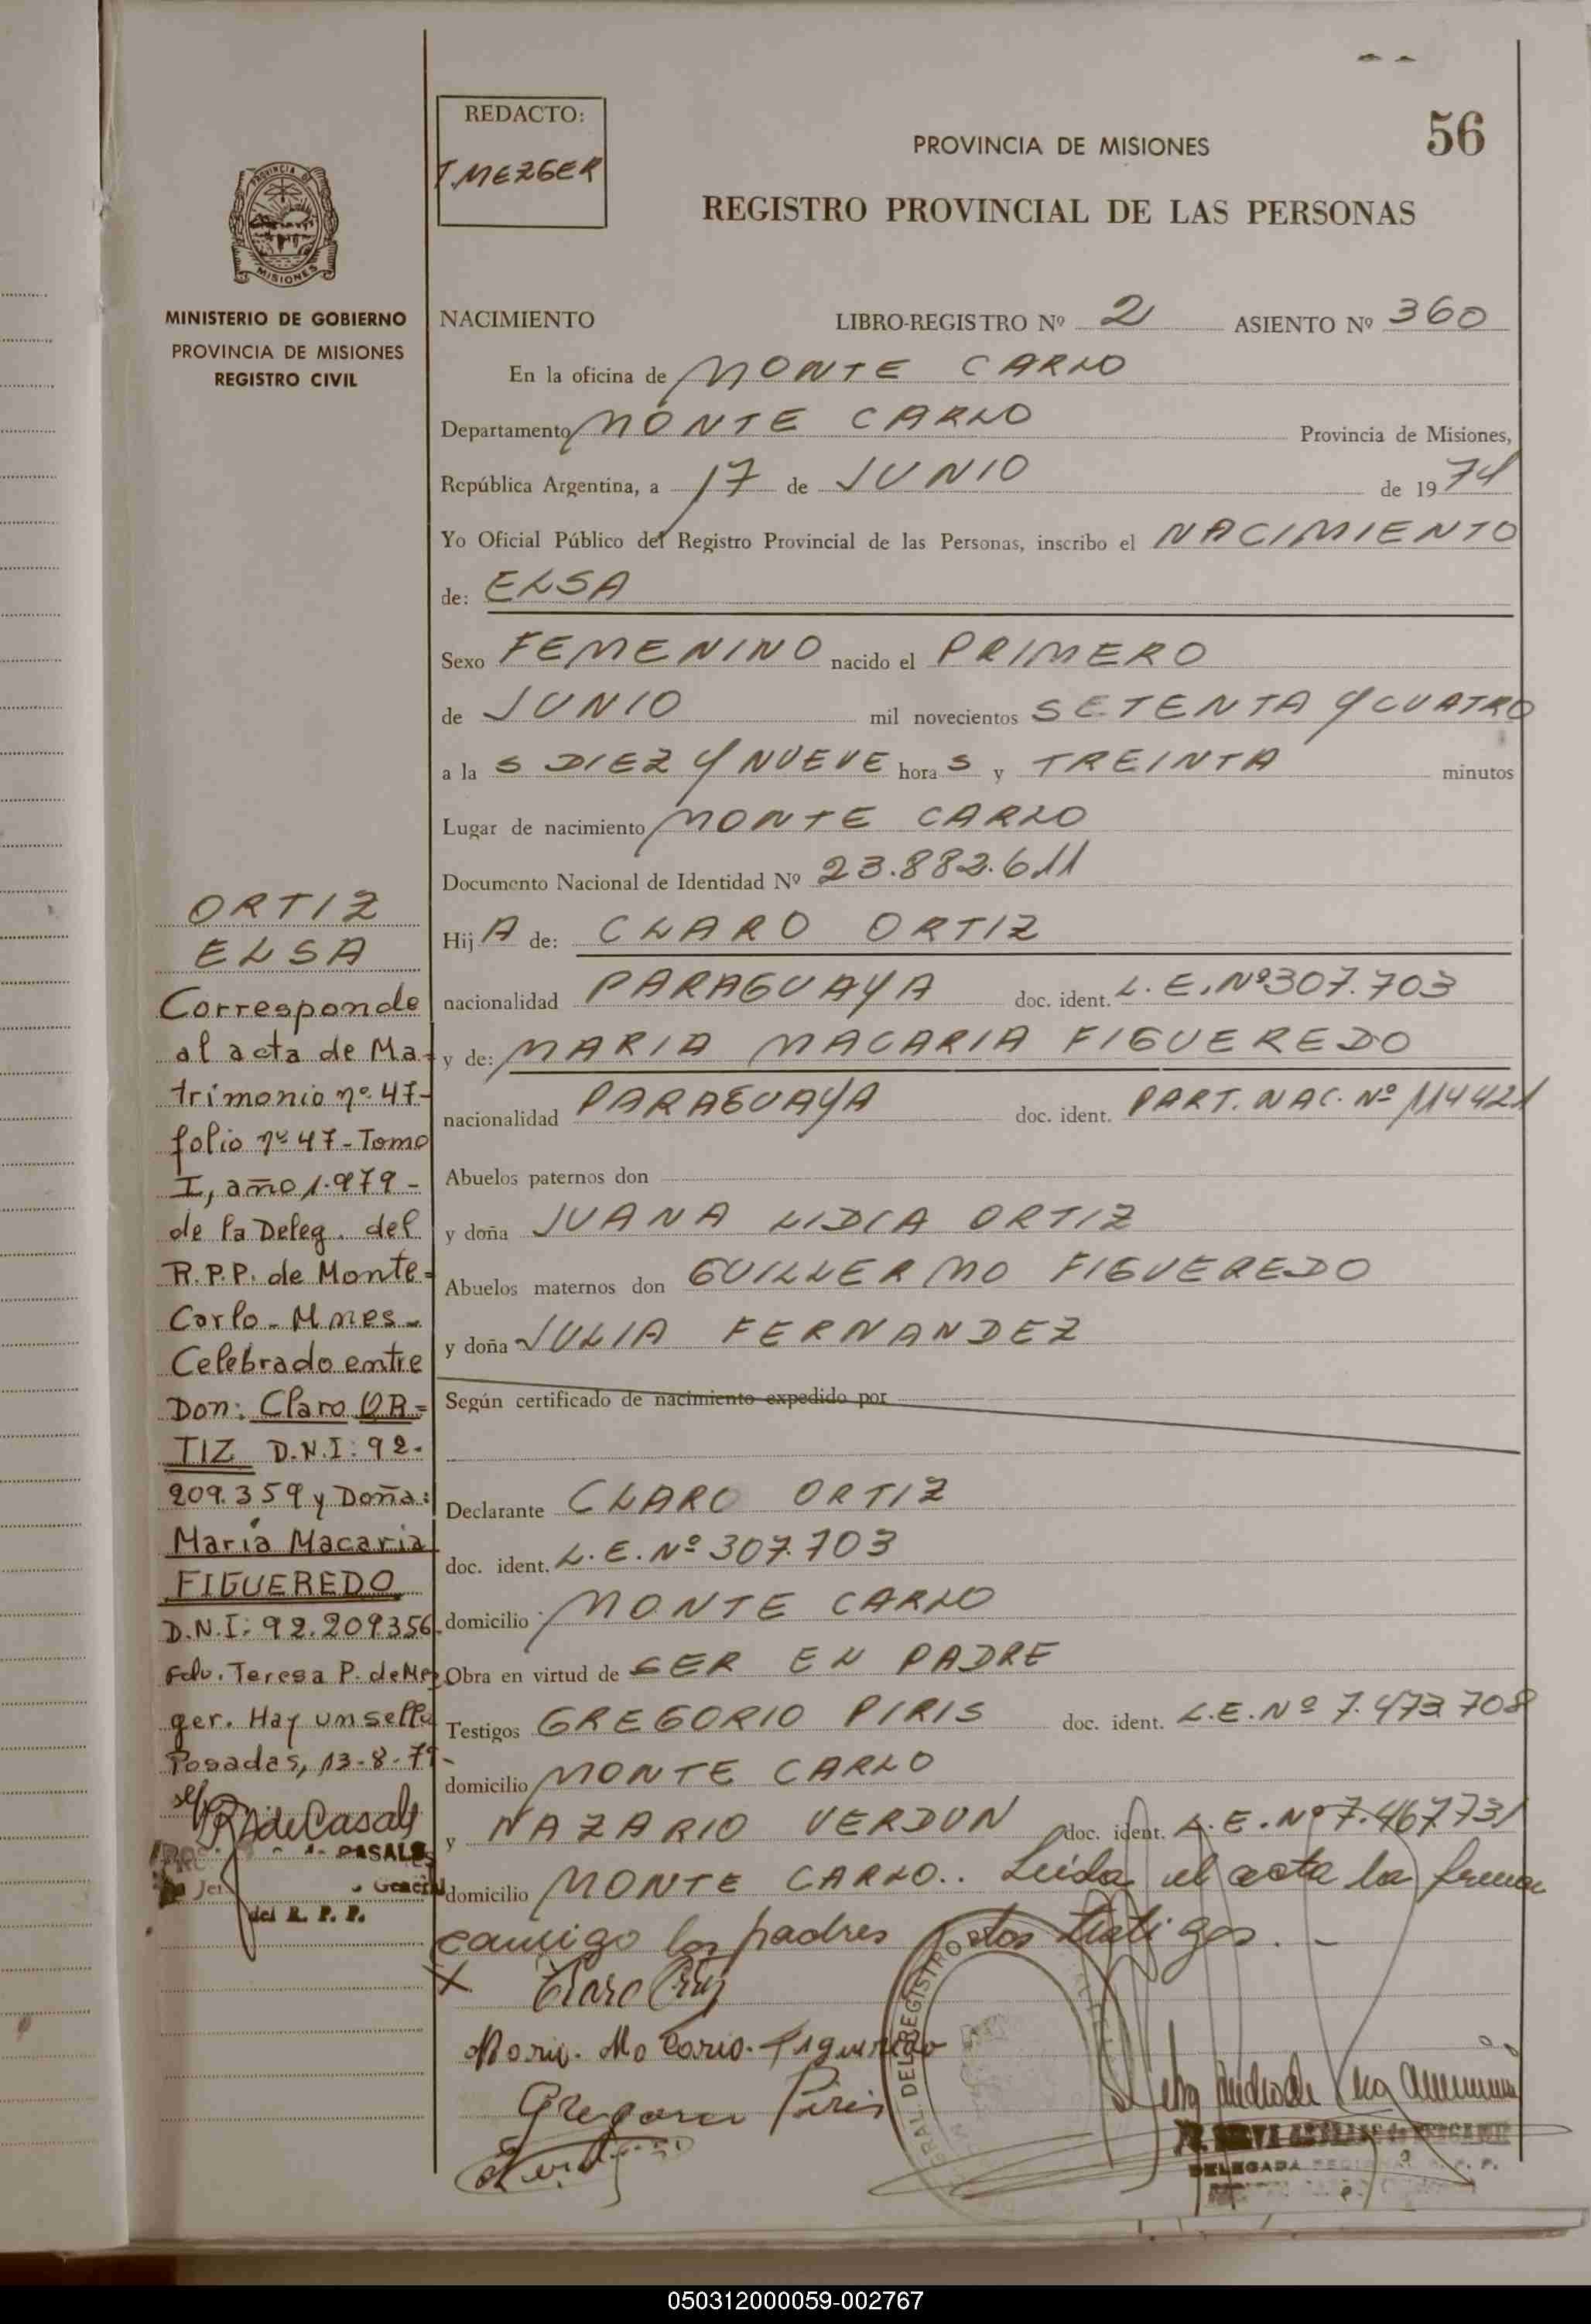 REDACTO:
T. MEZGER
PROVINCIA DE MISIONES
56
REGISTRO PROVINCIAL DE LAS PERSONAS
PROVINCIA DE
MISIONES
MINISTERIO DE GOBIERNO
PROVINCIA DE MISIONES
REGISTRO CIVIL
NACIMIENTO LIBRO-REGISTRO Nº 2 ASIENTO Nº 360
En la oficina de MONTE CARLO
Departamento MONTE CARLO Provincia de Misiones,
República Argentina, a 17 de JUNIO de 1974
Yo Oficial Público del Registro Provincial de las Personas, inscribo el NACIMIENTO
de: ELSA
Sexo FEMENINO nacido el PRIMERO
de JUNIO mil novecientos SETENTA Y CUATRO
a la S DIEZ Y NUEVE hora S y TREINTA minutos
Lugar de nacimiento MONTE CARLO
Documento Nacional de Identidad Nº 23.882.611
Hij A de: CLARO ORTIZ
nacionalidad PARAGUAYA doc. ident. L.E. Nº 307.703
y de: MARIA MACARIA FIGUEREDO
nacionalidad PARAGUAYA doc. ident. PART. NAC. Nº 114421
Abuelos paternos don
y doña JUANA LIDIA ORTIZ
Abuelos maternos don GUILLERMO FIGUEREDO
y doña JULIA FERNANDEZ
Según certificado de nacimiento expedido por
Declarante CLARO ORTIZ
doc. ident. L.E. Nº 307.703
domicilio MONTE CARLO
Obra en virtud de SER EL PADRE
Testigos GREGORIO PIRIS doc. ident. L.E. Nº 7.473.708
domicilio MONTE CARLO
y NAZARIO VERDUN doc. ident. L.E. Nº 7.467.731
domicilio MONTE CARLO.. Leida el acta la firman
conmigo los padres y los testigos. -
X Claro Ortiz
Maria Macaria Figueredo
Gregorio Piris
DEL REGISTRO
DELEGADA
ORTIZ
ELSA
Corresponde
al acta de Ma-
trimonio nº 47-
folio nº 47-Tomo
I, año 1.979-
de la Deleg. del
R.P.P. de Monte-
Carlo-Mnes-
Celebrado entre
Don: Claro OR=
TIZ D.N.I: 92.
209.359 y Doña:
María Macaria
FIGUEREDO
D.N.I: 92.209.356.
Fdo. Teresa P. de Mez
ger. Hay un sello
Posadas, 13-8-79-
R. de Casals
CASALS
Jef General
del R. P. P.
050312000059-002767